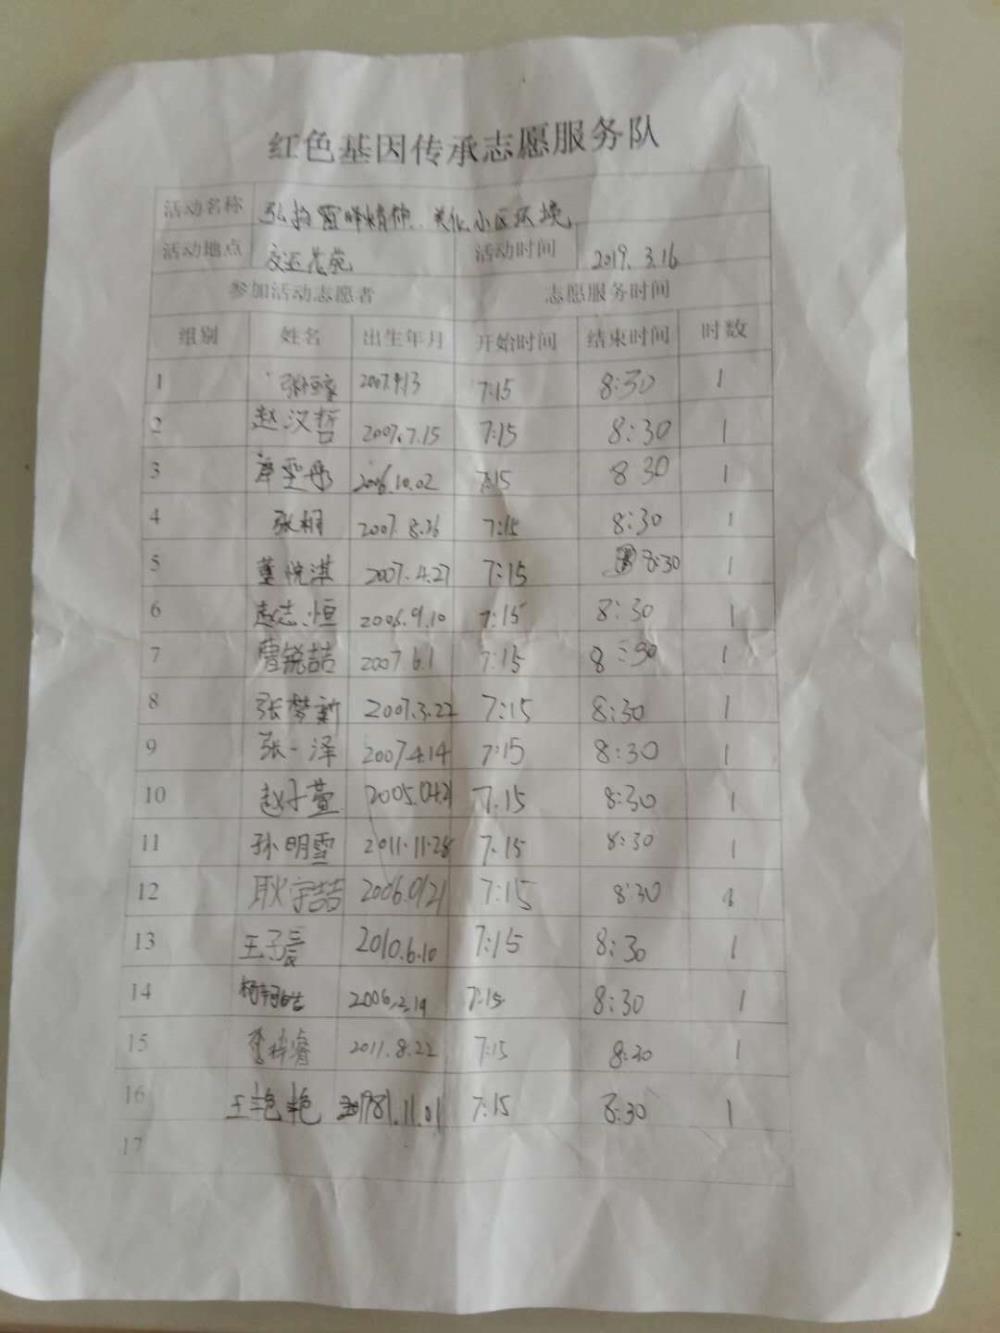 红色基因传承志愿服务队
活动名称 弘扬雷锋精神、美化小区环境
活动地点 交运花苑 活动时间 2019.3.16
参加活动志愿者 志愿服务时间
组别 姓名 出生年月 开始时间 结束时间 时数
1 7:15 8:30 1
2 赵汉哲 2007.7.15 7:15 8:30 1
3 2006.10.02 7:15 8 30 1
4 张栩 2007. 8.26 7:15 8:30 1
5 董悦淇 2007.4.27 7:15 8:30 1
6 赵志恒 2006.9.10 7:15 8:30 1
7 曹锐喆 2007 6.1 7:15 8:30 1
8 张梦新 2007.3.22 7:15 8:30 1
9 张一泽 2007.4.14 7:15 8:30 1
10 赵子萱 2005.04.21 7.15 8:30 1
11 孙明雪 2011.11.28 7.15 8:30 1
12 耿宇喆 7:15 8:30 1
13 王子辰 2010.6.10 7:15 8:30 1
14 2006.2.19 7:15 8:30 1
15 李梓睿 2011.8.22 7:15 8:30 1
16 王艳艳 1981.11.01 7:15 8:30 1
17